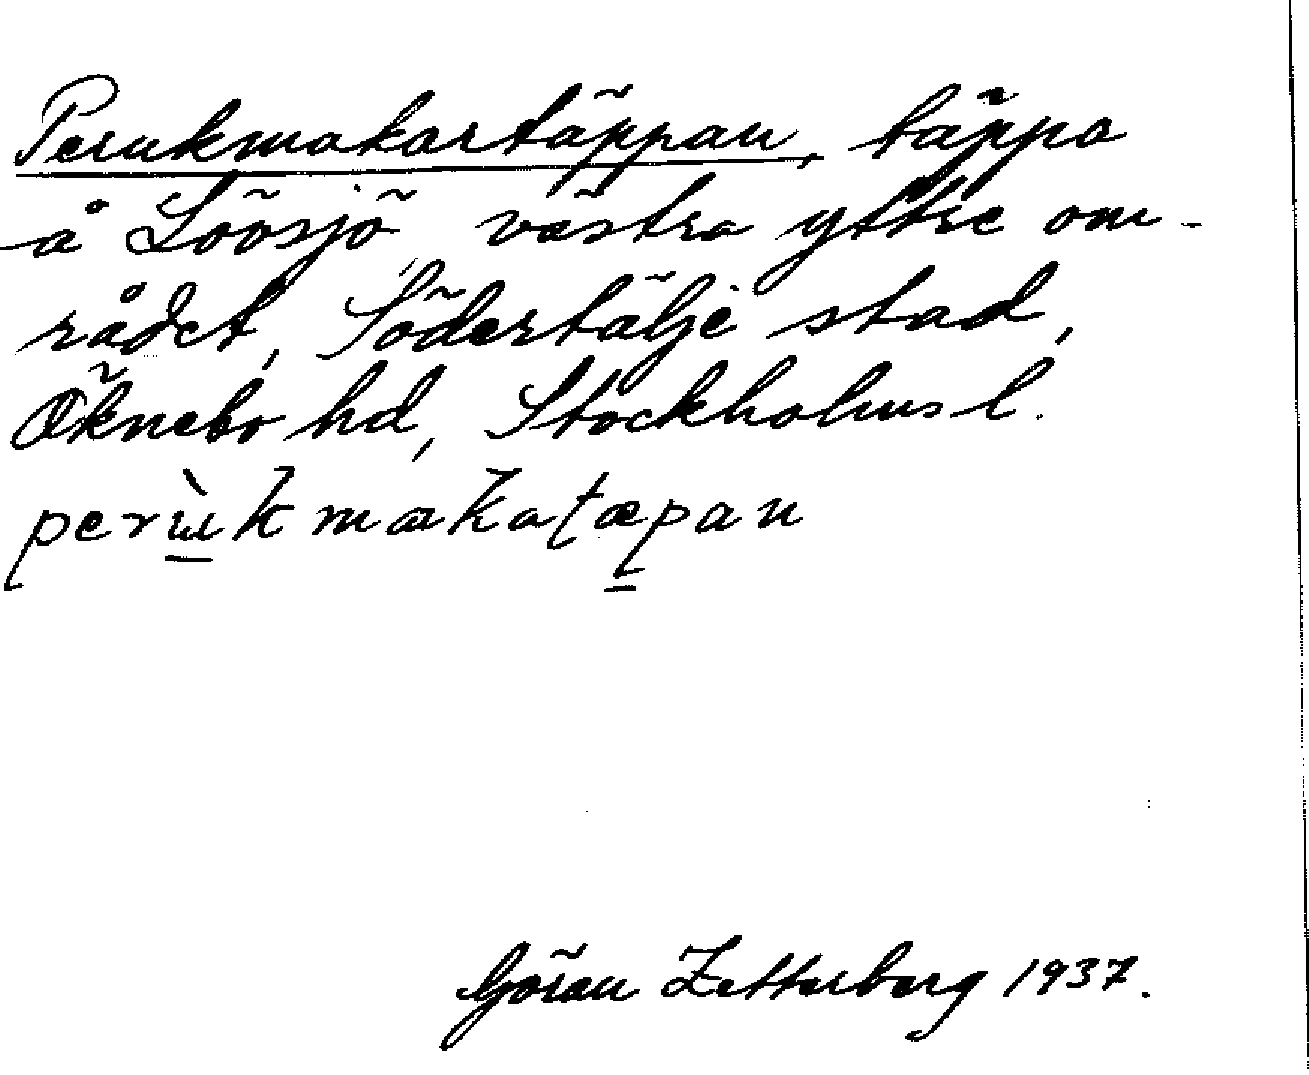 Perukmakartäppan, täppa
å Löösjö, västra yttre om-
rådet, Södertälje stad,
Öknebo hd, Stockholms l.
perɯ̀k makatæpan
Göran Zetterberg 1937.